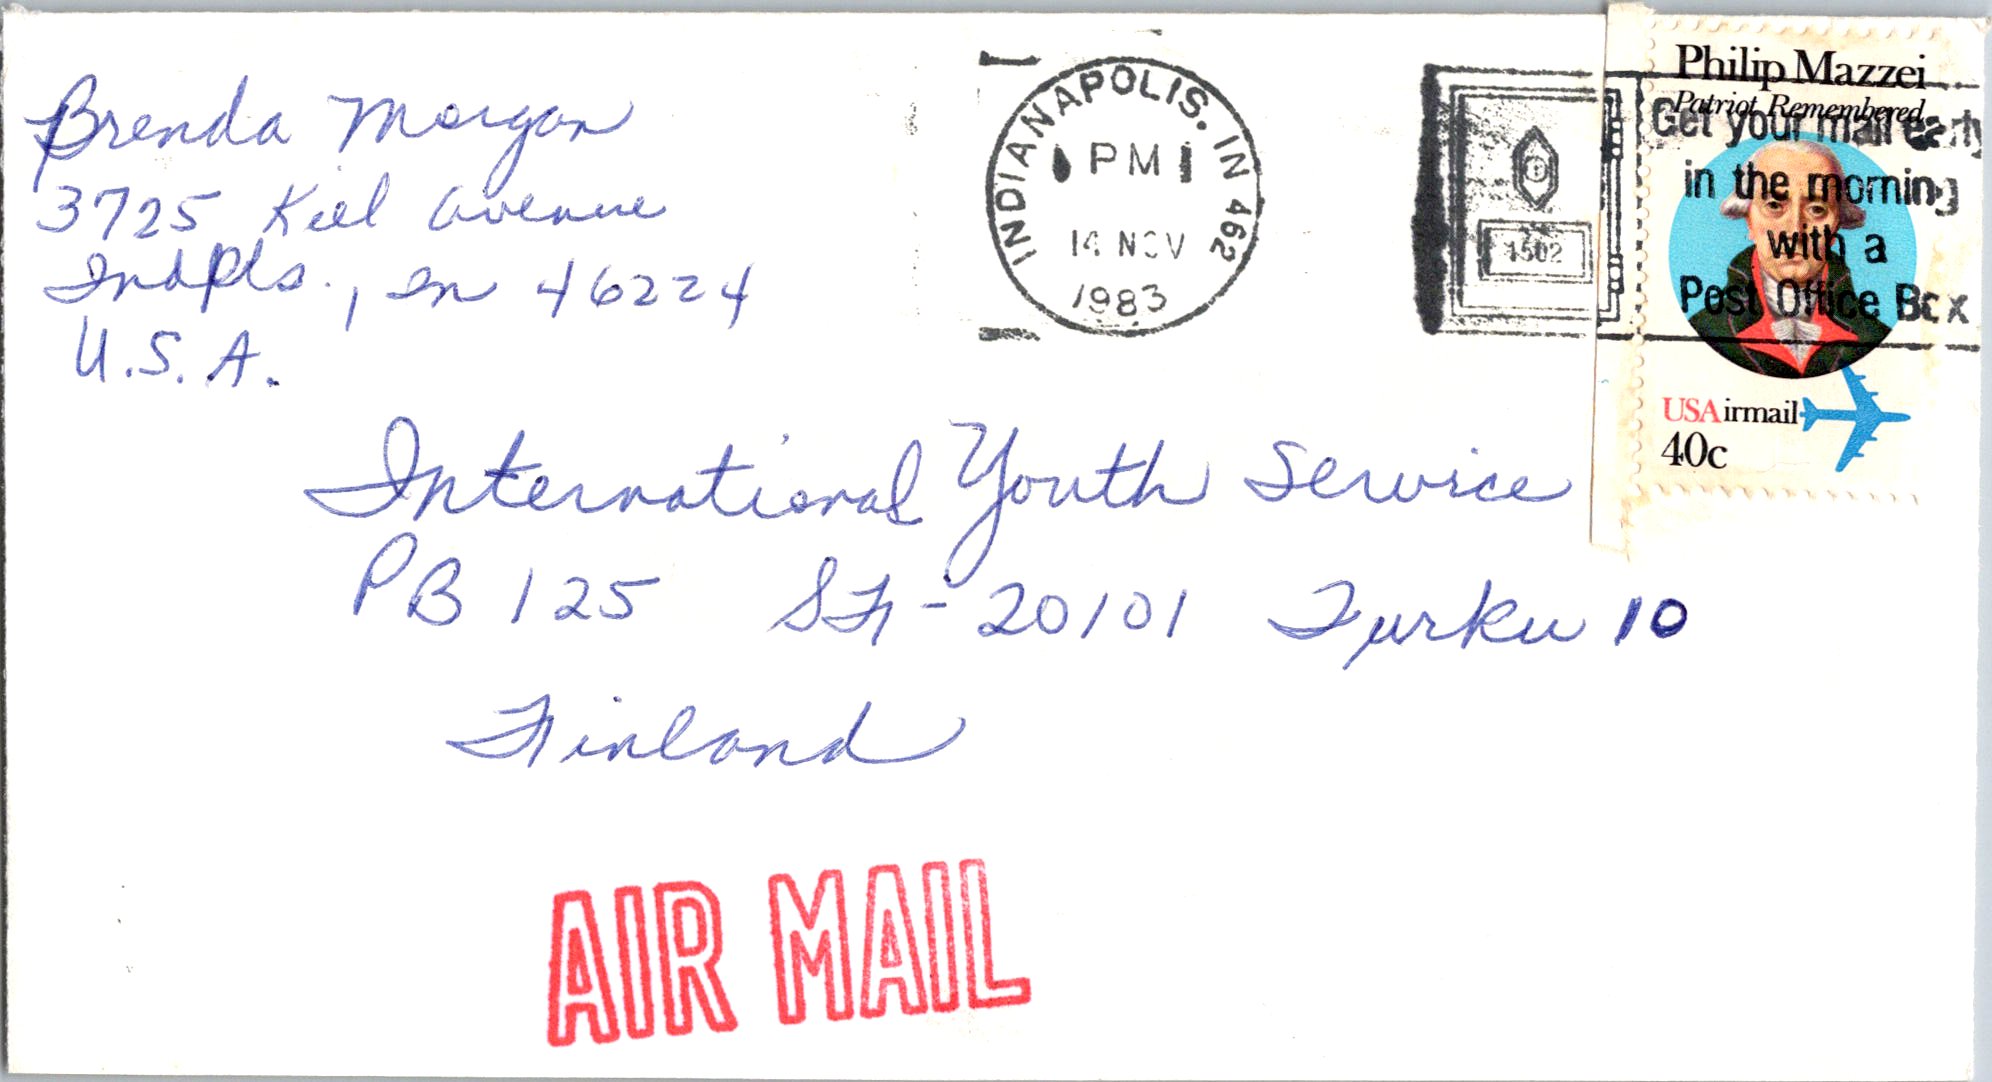 Brenda Morgan
3725 Kiel Avenue
Indpls., In 46224
U.S.A.
INDIANAPOLIS, IN 462
PM
14 NOV
1983
1502
Get your mail early
in the morning
with a
Post Office Box
Philip Mazzei
Patriot Remembered
USAirmail
40c
International Youth Service
PB 125 SF-20101 Turku 10
Finland
AIR MAIL